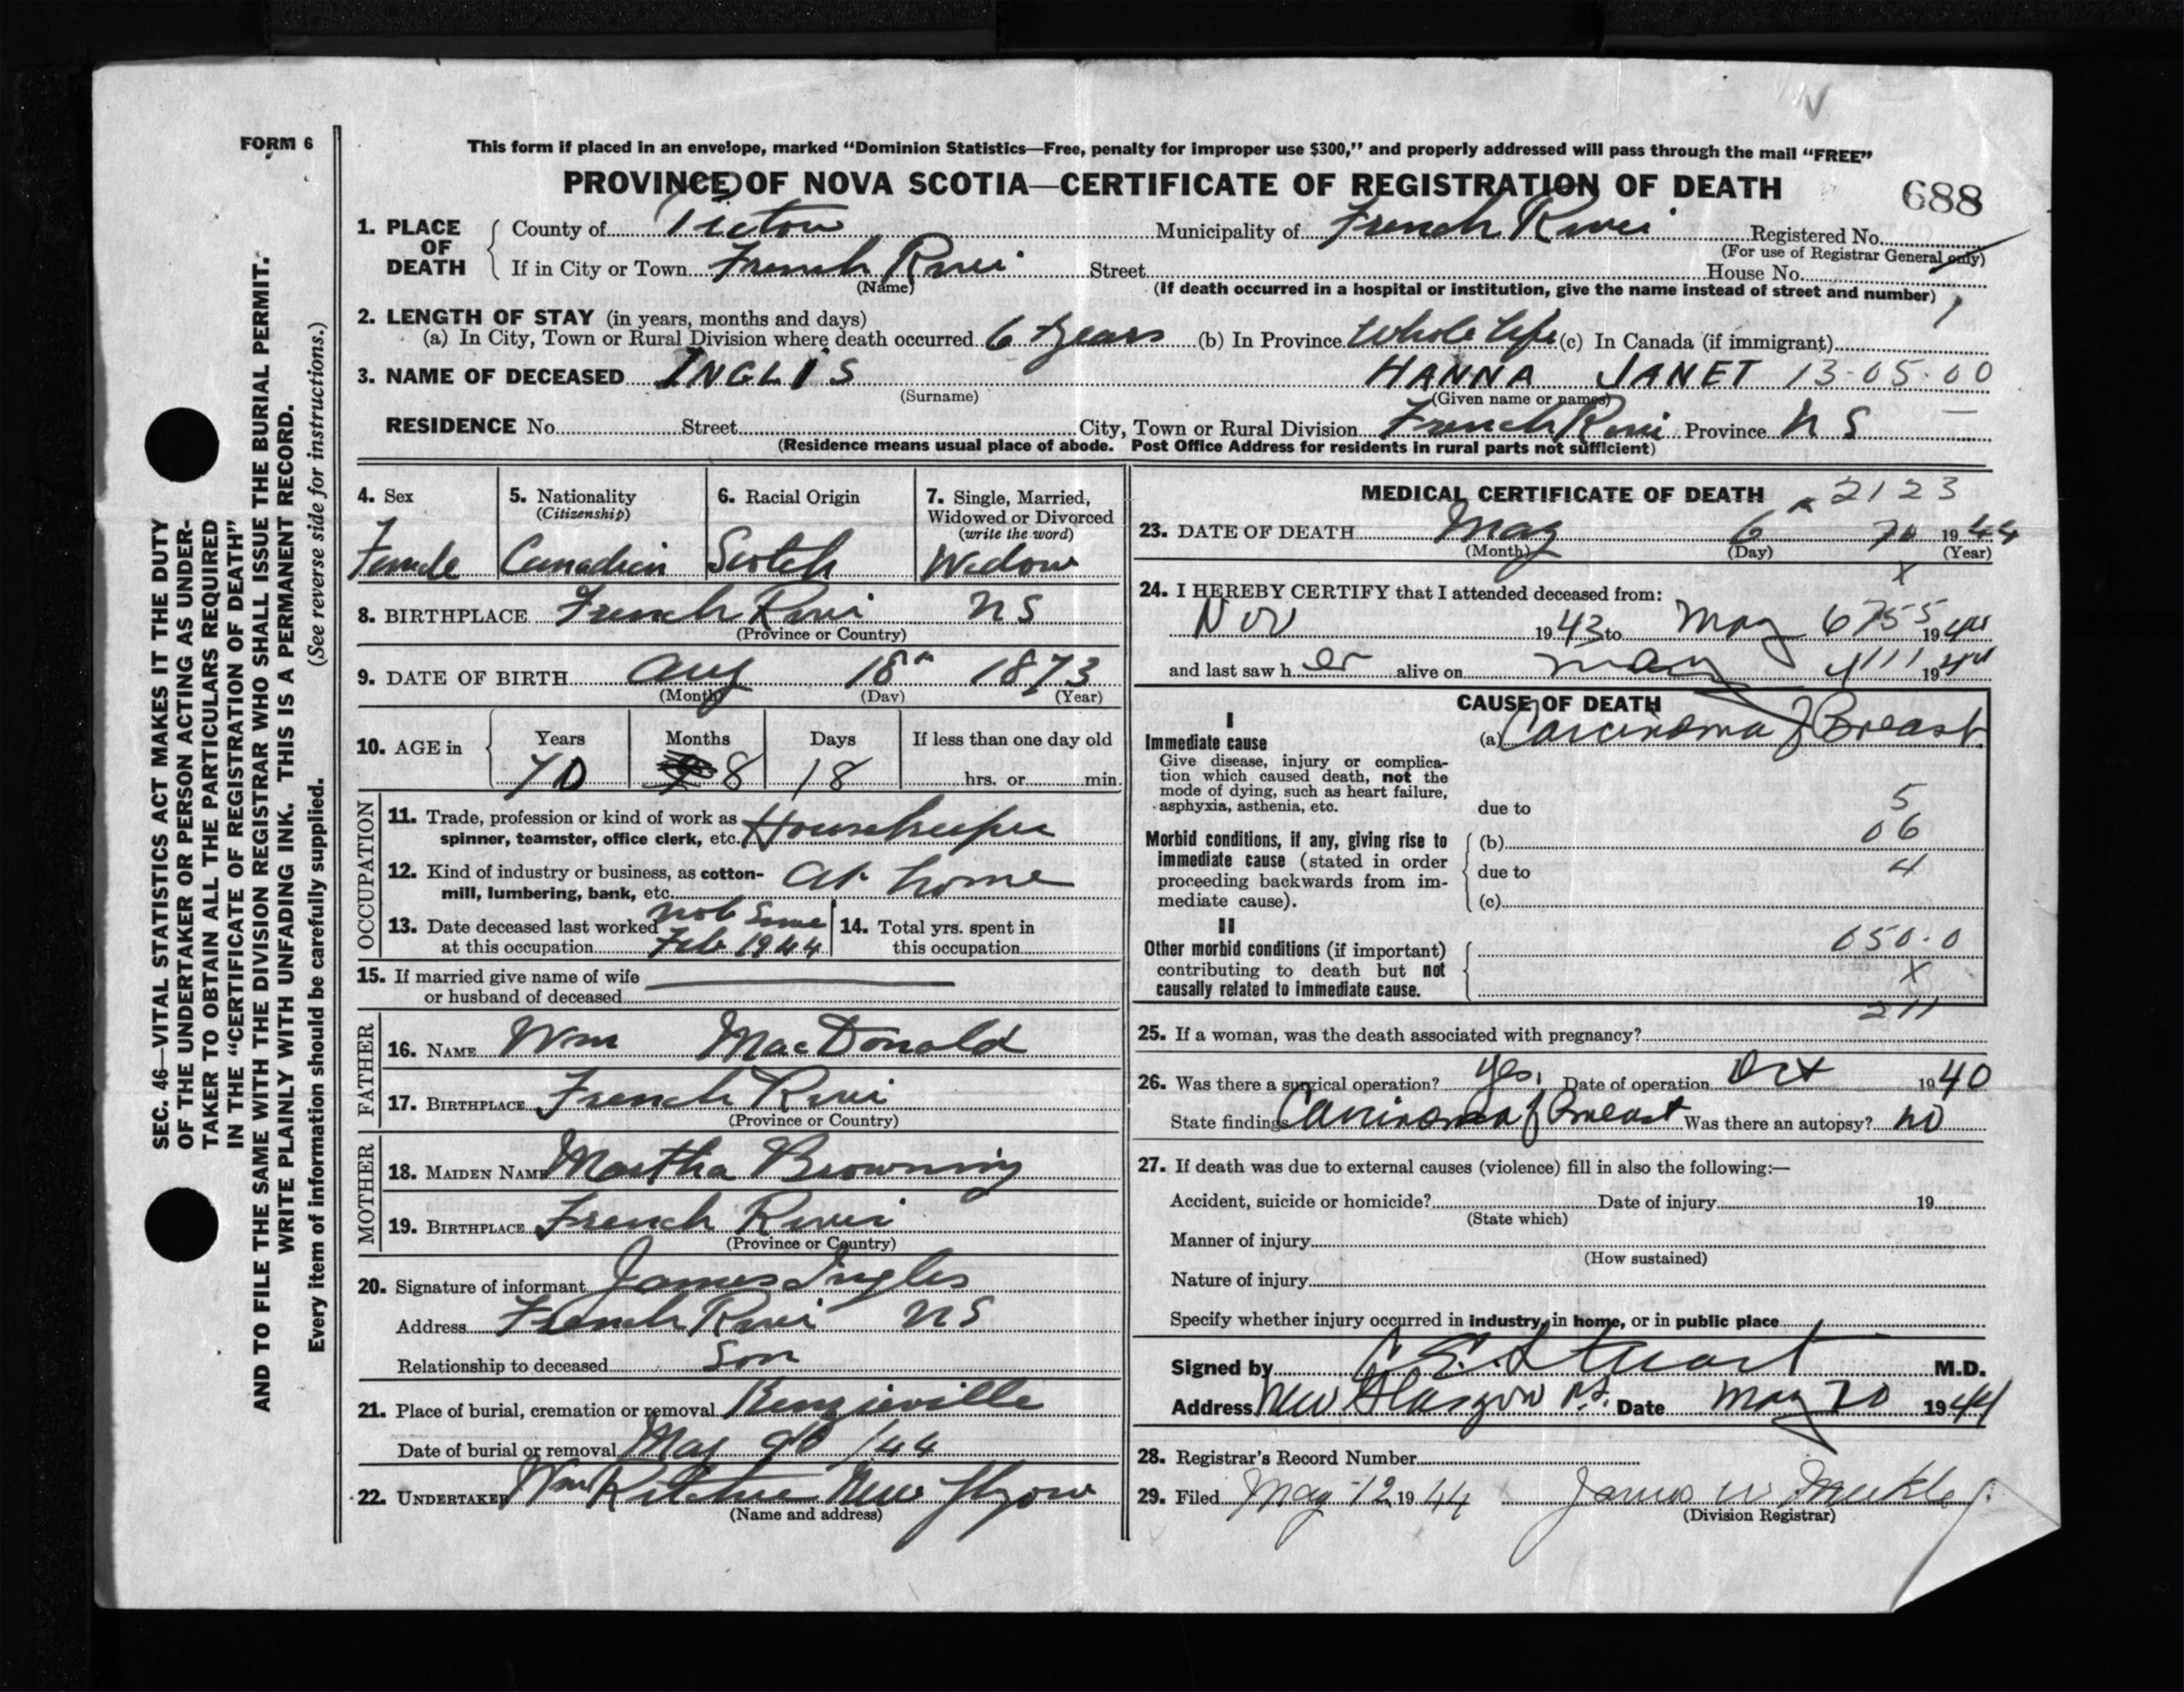 FORM 6
This form if placed in an envelope, marked “Dominion Statistics—Free, penalty for improper use $300,” and properly addressed will pass through the mail “FREE”
PROVINCE OF NOVA SCOTIA—CERTIFICATE OF REGISTRATION OF DEATH
688
1. PLACE OF DEATH
County of Pictou Municipality of French River Registered No.
(For use of Registrar General only)
If in City or Town French River Street House No.
(Name)
(If death occurred in a hospital or institution, give the name instead of street and number)
2. LENGTH OF STAY (in years, months and days)
(a) In City, Town or Rural Division where death occurred 6 years (b) In Province Whole life (c) In Canada (if immigrant)
3. NAME OF DECEASED INGLIS HANNA JANET 13-05-00
(Surname) (Given name or names)
RESIDENCE No. Street City, Town or Rural Division French River Province N S
(Residence means usual place of abode. Post Office Address for residents in rural parts not sufficient)
4. Sex
Female
5. Nationality
(Citizenship)
Canadian
6. Racial Origin
Scotch
7. Single, Married,
Widowed or Divorced
(write the word)
Widow
8. BIRTHPLACE French River NS
(Province or Country)
9. DATE OF BIRTH Aug 18th 1873
(Month) (Day) (Year)
10. AGE in
Years Months Days If less than one day old
70 8 18 hrs. or min.
OCCUPATION
11. Trade, profession or kind of work as
spinner, teamster, office clerk, etc. Housekeeper
12. Kind of industry or business, as cotton-
mill, lumbering, bank, etc. At home
13. Date deceased last worked not Since
at this occupation Feb 1944
14. Total yrs. spent in
this occupation
15. If married give name of wife
or husband of deceased
FATHER
16. NAME Wm MacDonald
17. BIRTHPLACE French River
(Province or Country)
MOTHER
18. MAIDEN NAME Martha Browning
19. BIRTHPLACE French River
(Province or Country)
20. Signature of informant James Ingles
Address French River NS
Relationship to deceased Son
21. Place of burial, cremation or removal Kenzieville
Date of burial or removal May 9th /44
22. UNDERTAKER Wm Ritchie New
(Name and address)
MEDICAL CERTIFICATE OF DEATH 2123
23. DATE OF DEATH May 6 70 1944
(Month) (Day) (Year)
x
24. I HEREBY CERTIFY that I attended deceased from:
Nov 1943 to May 6 755 1944
and last saw her alive on May 4 111 1944
CAUSE OF DEATH
I
Immediate cause (a) Carcinoma of Breast
Give disease, injury or complica-
tion which caused death, not the
mode of dying, such as heart failure,
asphyxia, asthenia, etc.
due to
5
06
4
Morbid conditions, if any, giving rise to
immediate cause (stated in order
proceeding backwards from im-
mediate cause).
(b)
due to
(c)
II
Other morbid conditions (if important)
contributing to death but not
causally related to immediate cause.
050.0
X
211
25. If a woman, was the death associated with pregnancy?
26. Was there a surgical operation? Yes, Date of operation Oct 1940
State findings Carcinoma of Breast Was there an autopsy? no
27. If death was due to external causes (violence) fill in also the following:—
Accident, suicide or homicide? Date of injury 19
(State which)
Manner of injury
(How sustained)
Nature of injury
Specify whether injury occurred in industry, in home, or in public place
Signed by C E Stuart M.D.
Address New Glasgow Date May 20 1944
28. Registrar's Record Number
29. Filed May 12 1944 James W
(Division Registrar)
SEC. 46—VITAL STATISTICS ACT MAKES IT THE DUTY
OF THE UNDERTAKER OR PERSON ACTING AS UNDER-
TAKER TO OBTAIN ALL THE PARTICULARS REQUIRED
IN THE “CERTIFICATE OF REGISTRATION OF DEATH”
AND TO FILE THE SAME WITH THE DIVISION REGISTRAR WHO SHALL ISSUE THE BURIAL PERMIT.
WRITE PLAINLY WITH UNFADING INK. THIS IS A PERMANENT RECORD.
Every item of information should be carefully supplied. (See reverse side for instructions.)